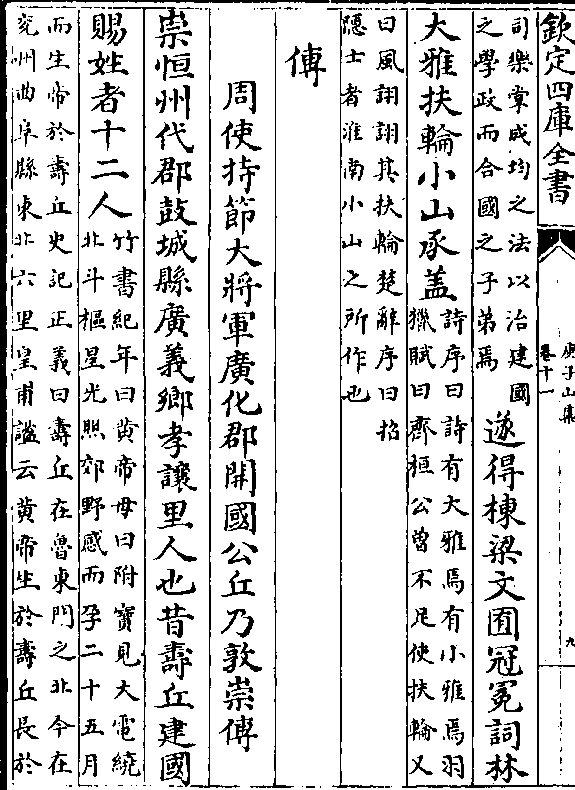 欽定四庫全書
庾子山集
卷十一
九
司樂掌成均之法以治建國
之學政而合國之子弟焉
遂得棟梁文囿冠冕詞林
大雅扶輪小山承盖
詩序曰詩有大雅焉有小雅焉羽
獵賦曰齊桓公曽不足使扶輪又
曰風詡詡其扶輪楚辭序曰招
隠士者淮南小山之所作也
傳
周使持節大將軍廣化郡開國公丘乃敦崇傳
崇恒州代郡鼓城縣廣義鄉孝讓里人也昔壽丘建國
賜姓者十二人
竹書紀年曰黄帝母曰附寶見大電繞
北斗樞星光照郊野感而孕二十五月
而生帝於壽丘史記正義曰壽丘在魯東門之北今在
兖州曲阜縣東北六里皇甫謐云黄帝生於壽丘長於